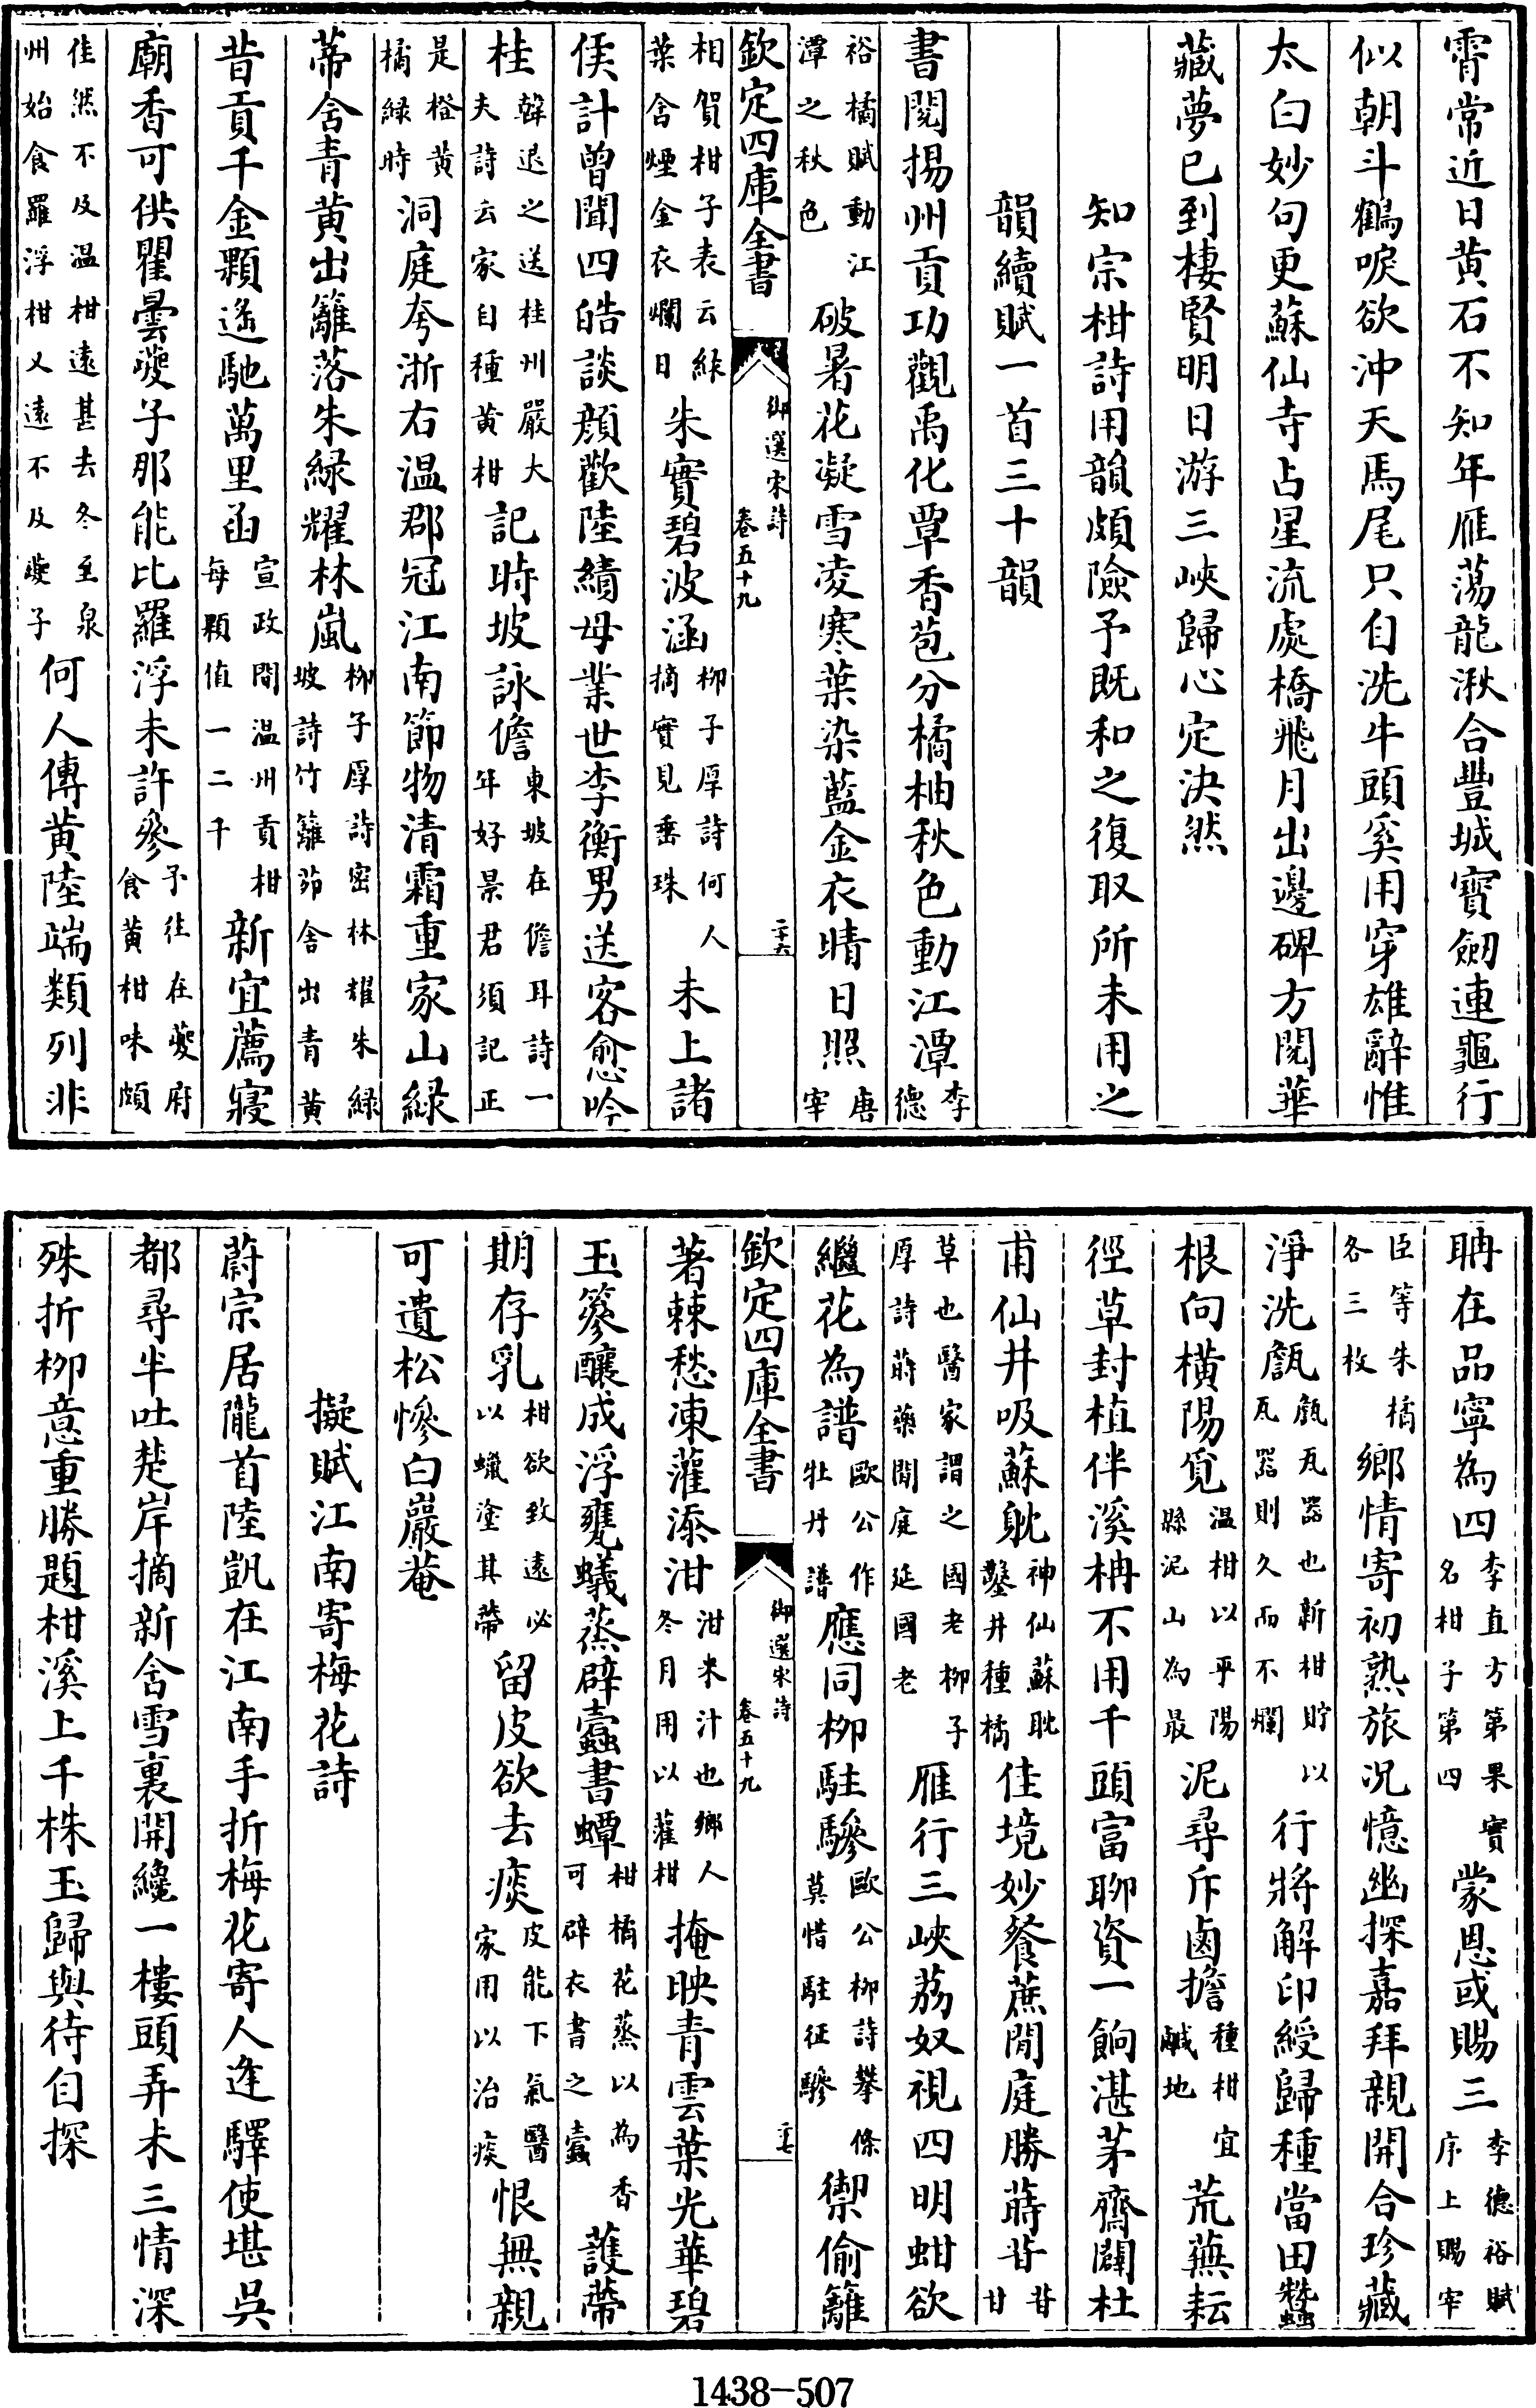 霄常近日黄石不知年雁蕩龍湫合豐城寶劒連龜行
似朝斗鶴唳欲沖天馬尾只自洗牛頭奚用穿雄辭惟
太白妙句更蘇仙寺占星流處橋飛月出邊碑方閱華
藏夢已到棲賢明日游三峽歸心定決然
知宗柑詩用韻頗險予既和之復取所未用之
韻續賦一首三十韻
書閱揚州貢功觀禹化覃香苞分橘柚秋色動江潭李德
裕橘賦動江潭之秋色破暑花凝雪凌寒葉染藍金衣晴日照唐宰
欽定四庫全書 御選宋詩 卷五十九 二十六
相賀柑子表云綠葉含煙金衣爛日朱實碧波涵柳子厚詩何人摘實見垂珠未上諸
侯計曾聞四皓談顔歡陸績母業世李衡男送客愈吟
桂韓退之送桂州嚴大夫詩云家自種黄柑記時坡詠儋東坡在儋耳詩一年好景君須記正
是橙黄橘緑時洞庭夸浙右温郡冠江南節物清霜重家山緑
蒂含青黄出籬落朱緑耀林嵐柳子厚詩密林耀朱緑坡詩竹籬茆舍出青黄
昔貢千金顆遥馳萬里函宣政間温州貢柑每顆值一二千新宜薦寢
廟香可供瞿曇夔子那能比羅浮未許參予往在夔府食黄柑味頗
佳然不及温柑遠甚去冬至泉州始食羅浮柑又遠不及夔子何人傳黄陸端類列非
聃在品寧為四李直方第果實名柑子第四蒙恩或賜三李德裕賦序上賜宰
臣等朱橘各三枚鄉情寄初熟旅况憶幽探嘉拜親開合珍藏
淨洗㽃㽃瓦器也新柑貯以瓦器則久而不爛行將解印綬歸種當田蠶
根向橫陽覓温柑以平陽縣泥山為最泥尋斥鹵擔種柑宜鹹地荒蕪耘
徑草封植伴溪柟不用千頭富聊資一餉湛茅齋闢杜
甫仙井吸蘇躭神仙蘇耽鑿井種橘佳境妙餐蔗閒庭勝蒔苷苷甘
草也醫家謂之國老柳子厚詩蒔藥閒庭延國老雁行三峽荔奴視四明蚶欲
繼花為譜歐公作牡丹譜應同柳駐驂歐公柳詩攀條莫惜駐征驂禦偷籬
欽定四庫全書 御選宋詩 卷五十九 二十七
著棘愁凍灌添泔泔米汁也鄉人冬月用以灌柑掩映青雲葉光華碧
玉篸釀成浮甕蟻蒸辟蠧書蟫柑橘花蒸以為香可辟衣書之蠧護蔕
期存乳柑欲致遠必以蠟塗其蔕留皮欲去痰皮能下氣醫家用以治痰恨無親
可遺松慘白巖菴
擬賦江南寄梅花詩
蔚宗居隴首陸凱在江南手折梅花寄人逢驛使堪吳
都尋半吐楚岸摘新含雪裏開纔一樓頭弄未三情深
殊折柳意重勝題柑溪上千株玉歸與待自探
1438-507